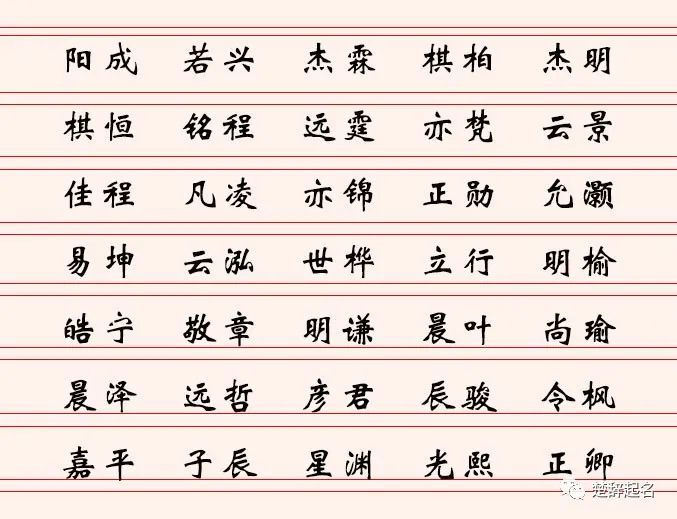 阳成 若兴 杰霖 棋柏 杰明
棋恒 铭程 远霆 亦梵 云景
佳程 凡凌 亦锦 正勋 允灏
易坤 云泓 世桦 立行 明榆
皓宁 敬章 明谦 晨叶 尚瑜
晨泽 远哲 彦君 辰骏 令枫
嘉平 子辰 星渊 光熙 正卿
楚辞起名